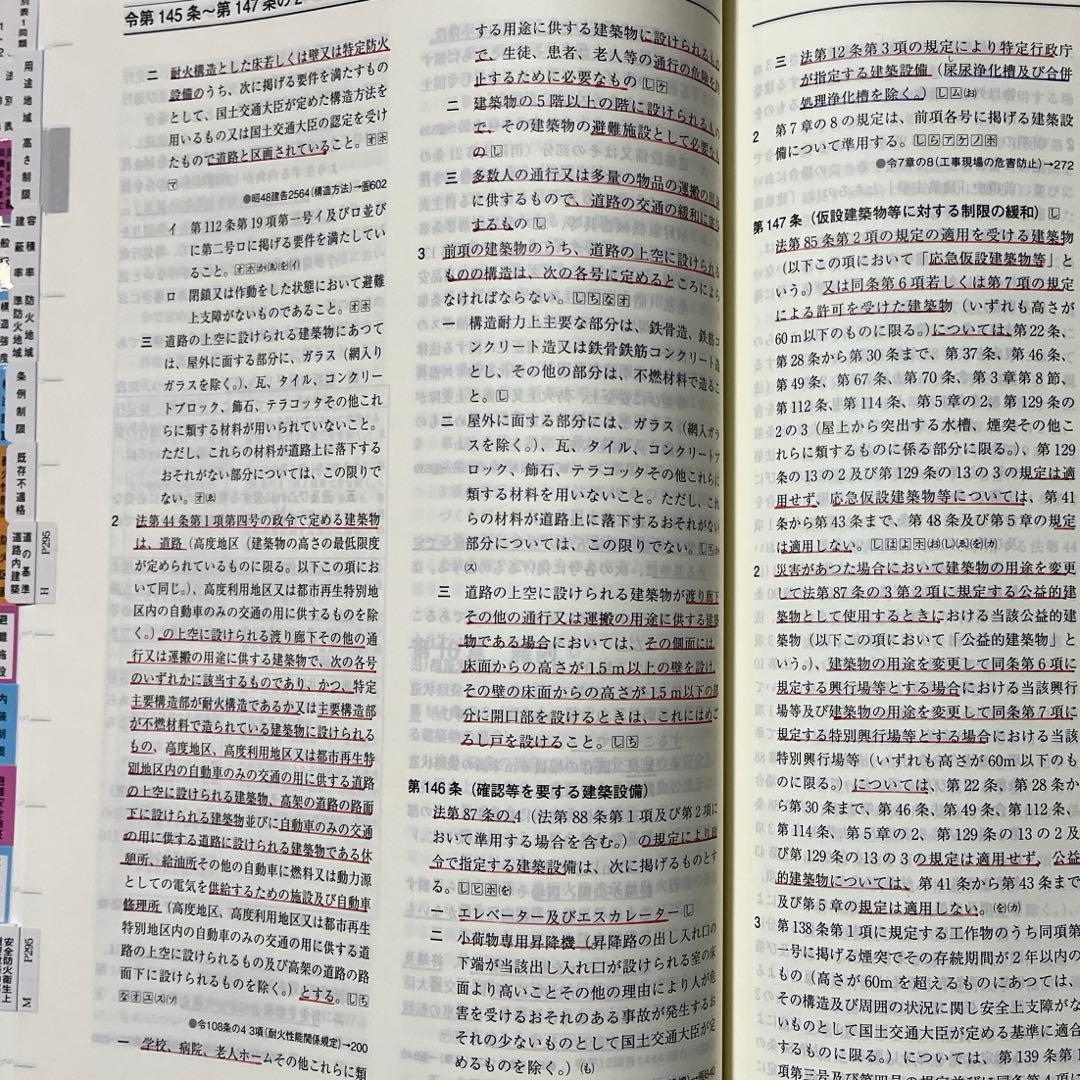 令第145条～第147条の2
二 耐火構造とした床若しくは壁又は特定防火
設備のうち、次に掲げる要件を満たすもの
として、国土交通大臣が定めた構造方法を
用いるもの又は国土交通大臣の認定を受け
たもので道路と区画されていること。オホ
マ
●昭48建告2564(構造方法)→告602
イ 第112条第19項第一号イ及びロ並び
に第二号ロに掲げる要件を満たしてい
ること。
ロ 閉鎖又は作動をした状態において避難
上支障がないものであること。オホ
三 道路の上空に設けられる建築物にあつて
は、屋外に面する部分に、ガラス（網入り
ガラスを除く。）、瓦、タイル、コンクリー
トブロック、飾石、テラコッタその他これ
らに類する材料が用いられていないこと。
ただし、これらの材料が道路上に落下する
おそれがない部分については、この限りで
ない。
2 法第44条第1項第四号の政令で定める建築物
は、道路（高度地区（建築物の高さの最低限度
が定められているものに限る。以下この項にお
いて同じ。）、高度利用地区又は都市再生特別地
区内の自動車のみの交通の用に供するものを除
く。）の上空に設けられる渡り廊下その他の通
行又は運搬の用途に供する建築物で、次の各号
のいずれかに該当するものであり、かつ、特定
主要構造部が耐火構造であるか又は主要構造部
が不燃材料で造られている建築物に設けられる
もの、高度地区、高度利用地区又は都市再生特
別地区内の自動車のみの交通の用に供する道路
の上空に設けられる建築物、高架の道路の路面
下に設けられる建築物並びに自動車のみの交通
の用に供する道路に設けられる建築物である休
憩所、給油所その他の自動車に燃料又は動力源
としての電気を供給するための施設及び自動車
修理所（高度地区、高度利用地区又は都市再生
特別地区内の自動車のみの交通の用に供する道
路の上空に設けられるもの及び高架の道路の路
面下に設けられるものを除く。）とする。しち
なオユスソ
●令108条の4 3項(耐火性能関係規定)→200
一 学校、病院、老人ホームその他これらに類
する用途に供する建築物に設けられるもの
で、生徒、患者、老人等の通行の危険を
止するために必要なもの しケ
二 建築物の5階以上の階に設けられるもの
で、その建築物の避難施設として必要なも
の し
三 多数人の通行又は多量の物品の運搬の用途
に供するもので、道路の交通の緩和に寄与
するもの し
3 前項の建築物のうち、道路の上空に設けられる
ものの構造は、次の各号に定めるところによら
なければならない。しちなオ
一 構造耐力上主要な部分は、鉄骨造、鉄筋コ
ンクリート造又は鉄骨鉄筋コンクリート造
とし、その他の部分は、不燃材料で造るこ
と。し
二 屋外に面する部分には、ガラス（網入ガラ
スを除く。）、瓦、タイル、コンクリートブ
ロック、飾石、テラコッタその他これらに
類する材料を用いないこと。ただし、これ
らの材料が道路上に落下するおそれがない
部分については、この限りでない。
(ス)
三 道路の上空に設けられる建築物が渡り廊下
その他の通行又は運搬の用途に供する建築
物である場合においては、その側面には、
床面からの高さが1.5m以上の壁を設け、
その壁の床面からの高さが1.5m以下の部
分に開口部を設けるときは、これにはめご
ろし戸を設けること。しち
第146条（確認等を要する建築設備）
法第87条の4（法第88条第1項及び第2項に
おいて準用する場合を含む。）の規定により政
令で指定する建築設備は、次に掲げるものとす
る。しヒホ(を)
一 エレベーター及びエスカレーター し
二 小荷物専用昇降機（昇降路の出し入れ口の
下端が当該出し入れ口が設けられる室の床
面より高いことその他の理由により人が危
害を受けるおそれのある事故が発生するお
それの少ないものとして国土交通大臣が定
めるものを除く。）(も)
三 法第12条第3項の規定により特定行政庁
が指定する建築設備（屎尿浄化槽及び合併
処理浄化槽を除く。）しム(お)
2 第7章の8の規定は、前項各号に掲げる建築設
備について準用する。しらアケノホ
●令7章の8(工事現場の危害防止)→272
第147条（仮設建築物等に対する制限の緩和）し
法第85条第2項の規定の適用を受ける建築物
（以下この項において「応急仮設建築物等」と
いう。）又は同条第6項若しくは第7項の規定
による許可を受けた建築物（いずれも高さが
60m以下のものに限る。）については、第22条、
第28条から第30条まで、第37条、第46条、
第49条、第67条、第70条、第3章第8節、
第112条、第114条、第5章の2、第129条の
2の3（屋上から突出する水槽、煙突その他こ
れらに類するものに係る部分に限る。）、第129
条の13の2及び第129条の13の3の規定は適
用せず、応急仮設建築物等については、第41
条から第43条まで、第48条及び第5章の規定
は適用しない。
2 災害があつた場合において建築物の用途を変更
して法第87条の3第2項に規定する公益的建
築物として使用するときにおける当該公益的建
築物（以下この項において「公益的建築物」と
いう。）、建築物の用途を変更して同条第6項に
規定する興行場等とする場合における当該興行
場等及び建築物の用途を変更して同条第7項に
規定する特別興行場等とする場合における当該
特別興行場等（いずれも高さが60m以下のも
のに限る。）については、第22条、第28条か
ら第30条まで、第46条、第49条、第112条、
第114条、第5章の2、第129条の13の2及
び第129条の13の3の規定は適用せず、公益
的建築物については、第41条から第43条まで
及び第5章の規定は適用しない。(を)(カ)
3 第138条第1項に規定する工作物のうち同項第
一号に掲げる煙突でその存続期間が2年以内の
もの（高さが60mを超えるものにあつては、
その構造及び周囲の状況に関し安全上支障がな
いものとして国土交通大臣が定める基準に適合
するものに限る。）については、第139条第1
用途地域
高さ制限
容積率
建蔽率
防火地域
準防火地域
条例制限
既存不適格
道の基準
道路内建築
P295
H
P295
M